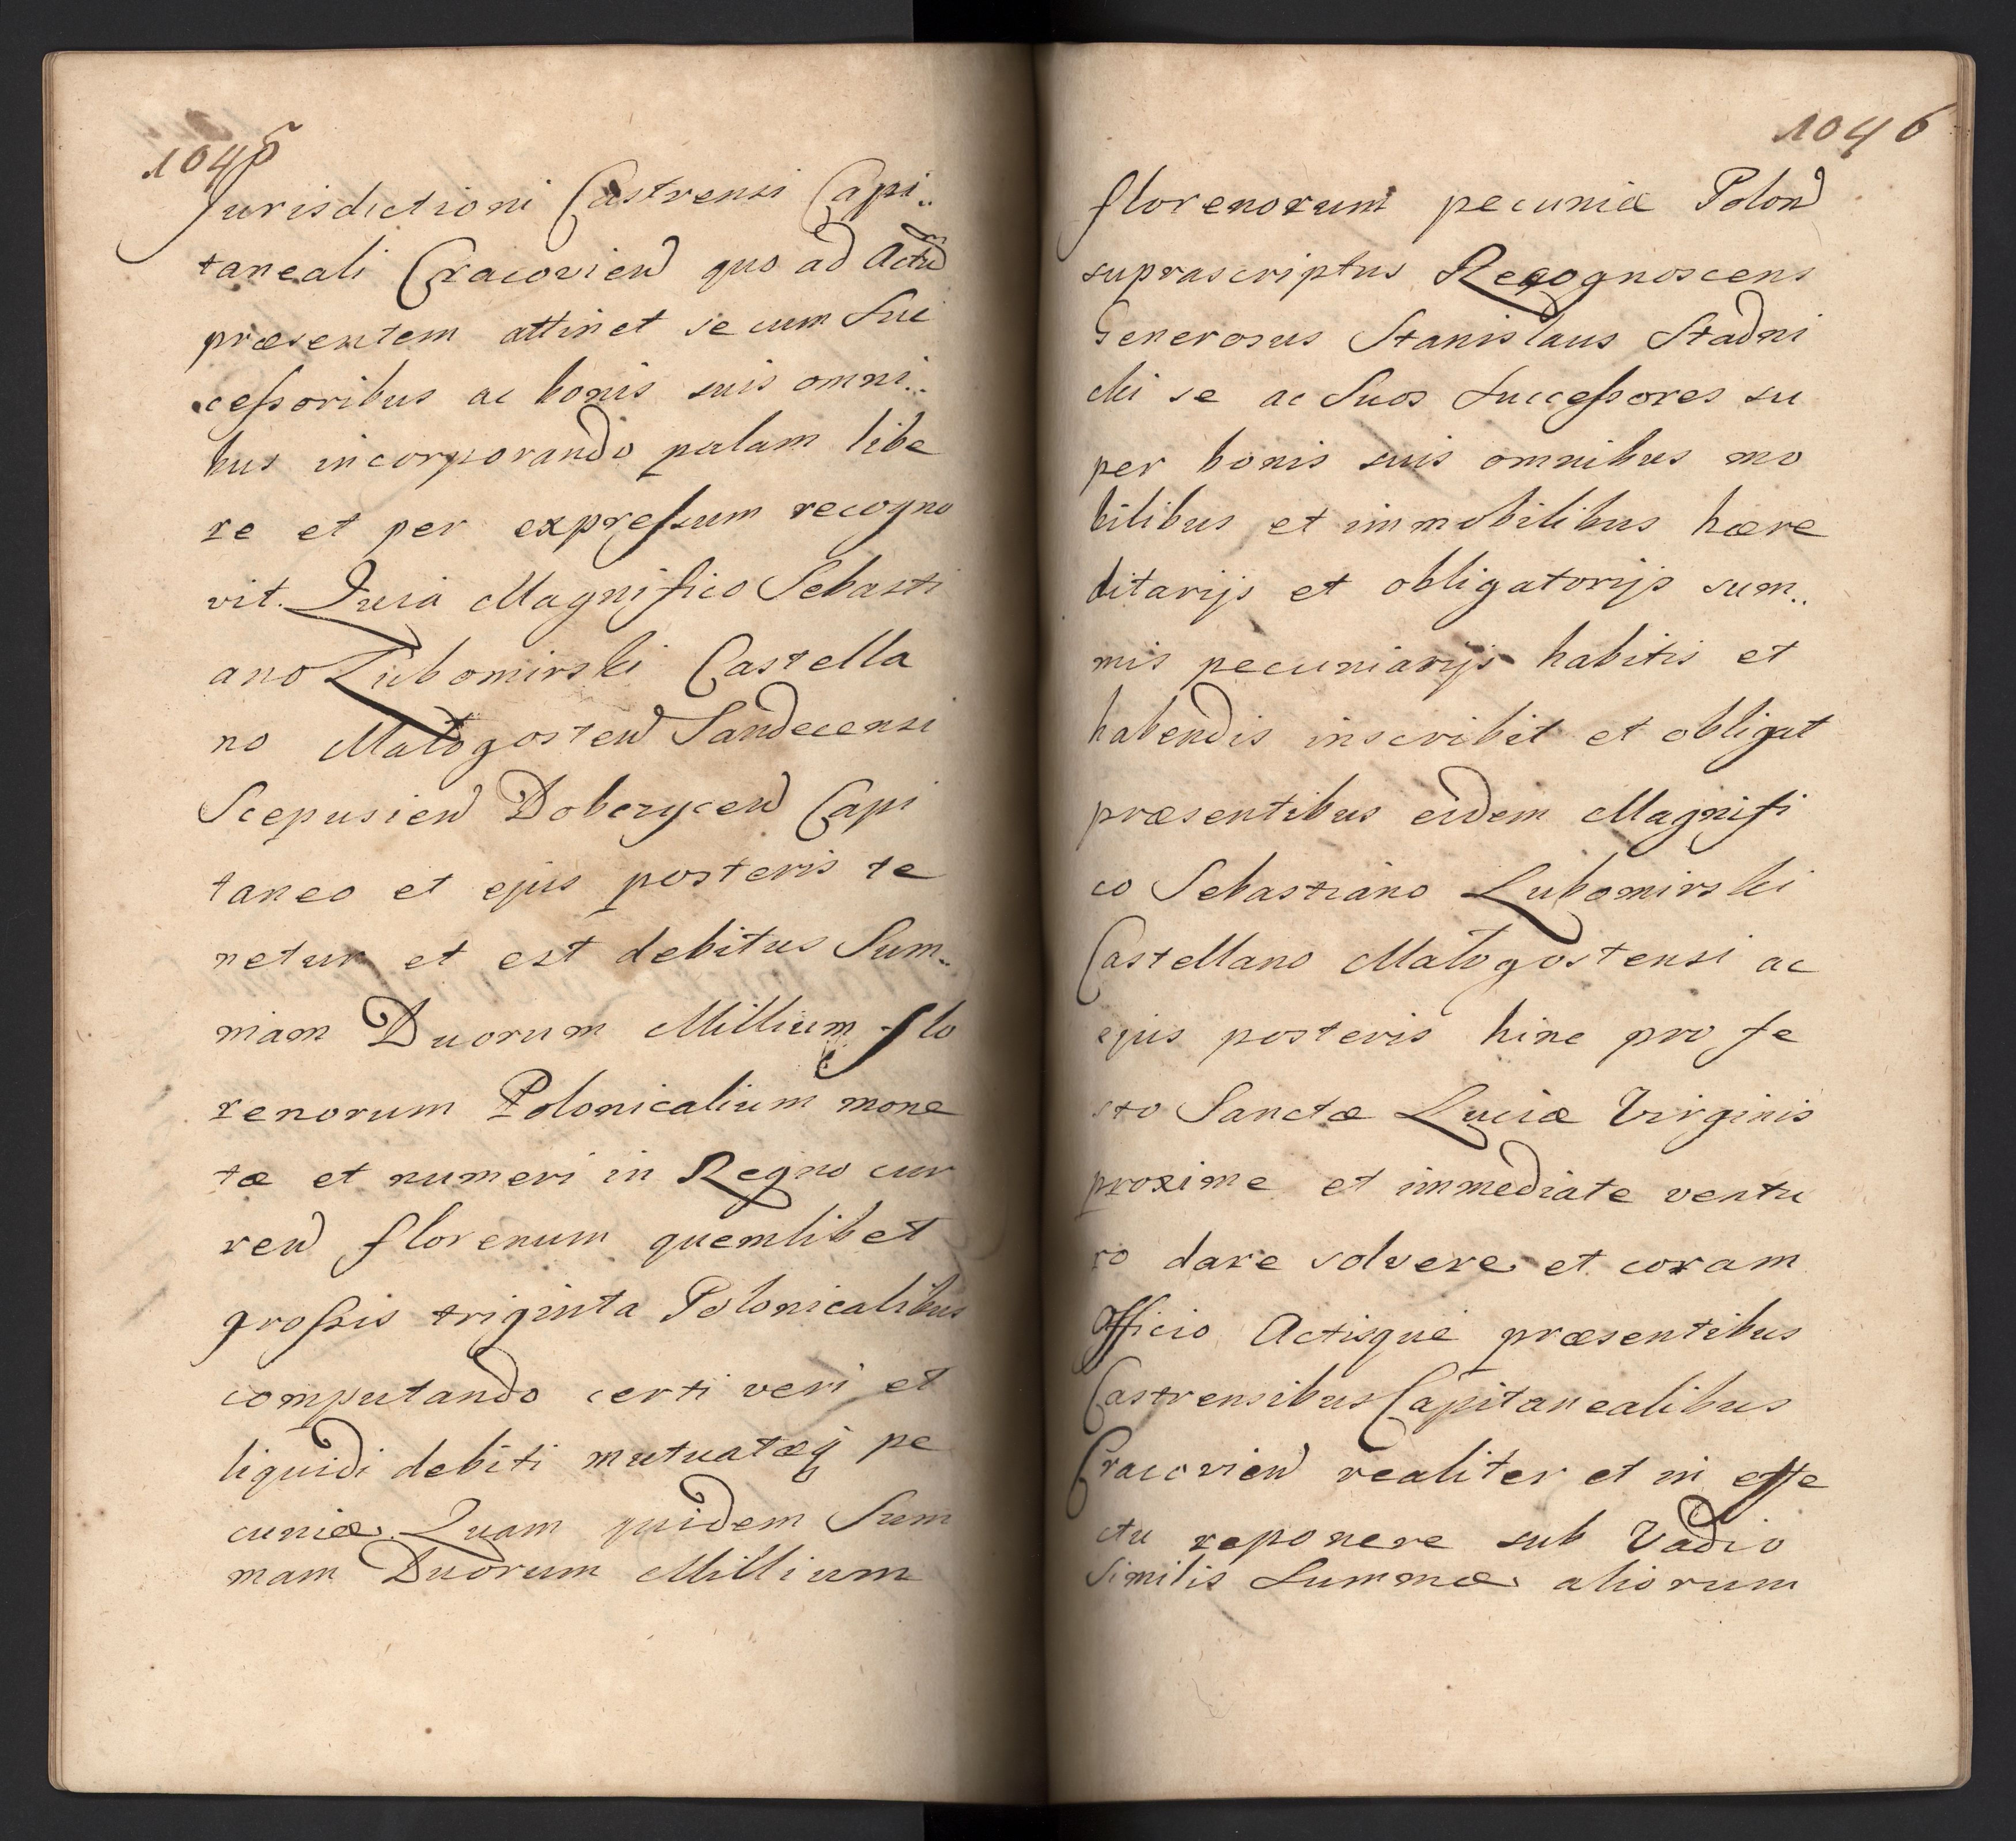 1045
Jurisdictioni Castrensi Capi..
taneali Cracovien quo ad Actum
præsentem attinet se cum Suc
cessoribus ac bonis suis omni..
bus incorporando palam libe
re et per expressum recogno
vit. Quia Magnifico Sebasti
ano Lubomirski Castella
no Małogosten Sandecensi
Scepusien Dobczycen Capi
taneo et ejus posteris te
netur et est debitus Sum..
mam Duorum Millium flo
renorum Polonicalium mone
tæ et numeri in Regno cur
ren florenum quemlibet
grossis triginta Polonicalibus
computando certi veri et
liquidi debiti mutuatæq pe
cuniæ. Quam quidem Sum
mam Duorum Millium
1046
florenorum pecuniæ Polon
suprascriptus Recognoscens
Generosus Stanislaus Stadni
cki se ac Suos Successores su
per bonis suis omnibus mo
bilibus et immobilibus hære
ditarijs et obligatorijs sum..
mis pecuniarijs habitis et
habendis inscribit et obligat
præsentibus eidem Magnifi
co Sebastiano Lubomirski
Castellano Małogostensi ac
ejus posteris hinc pro fe
sto Sanctæ Luciæ Virginis
proxime et immediate ventu
ro dare solvere et coram
Officio Actisque præsentibus
Castrensibus Capitanealibus
Cracovien realiter et in effe
ctu reponere sub Vadio
Similis Summæ aliorum